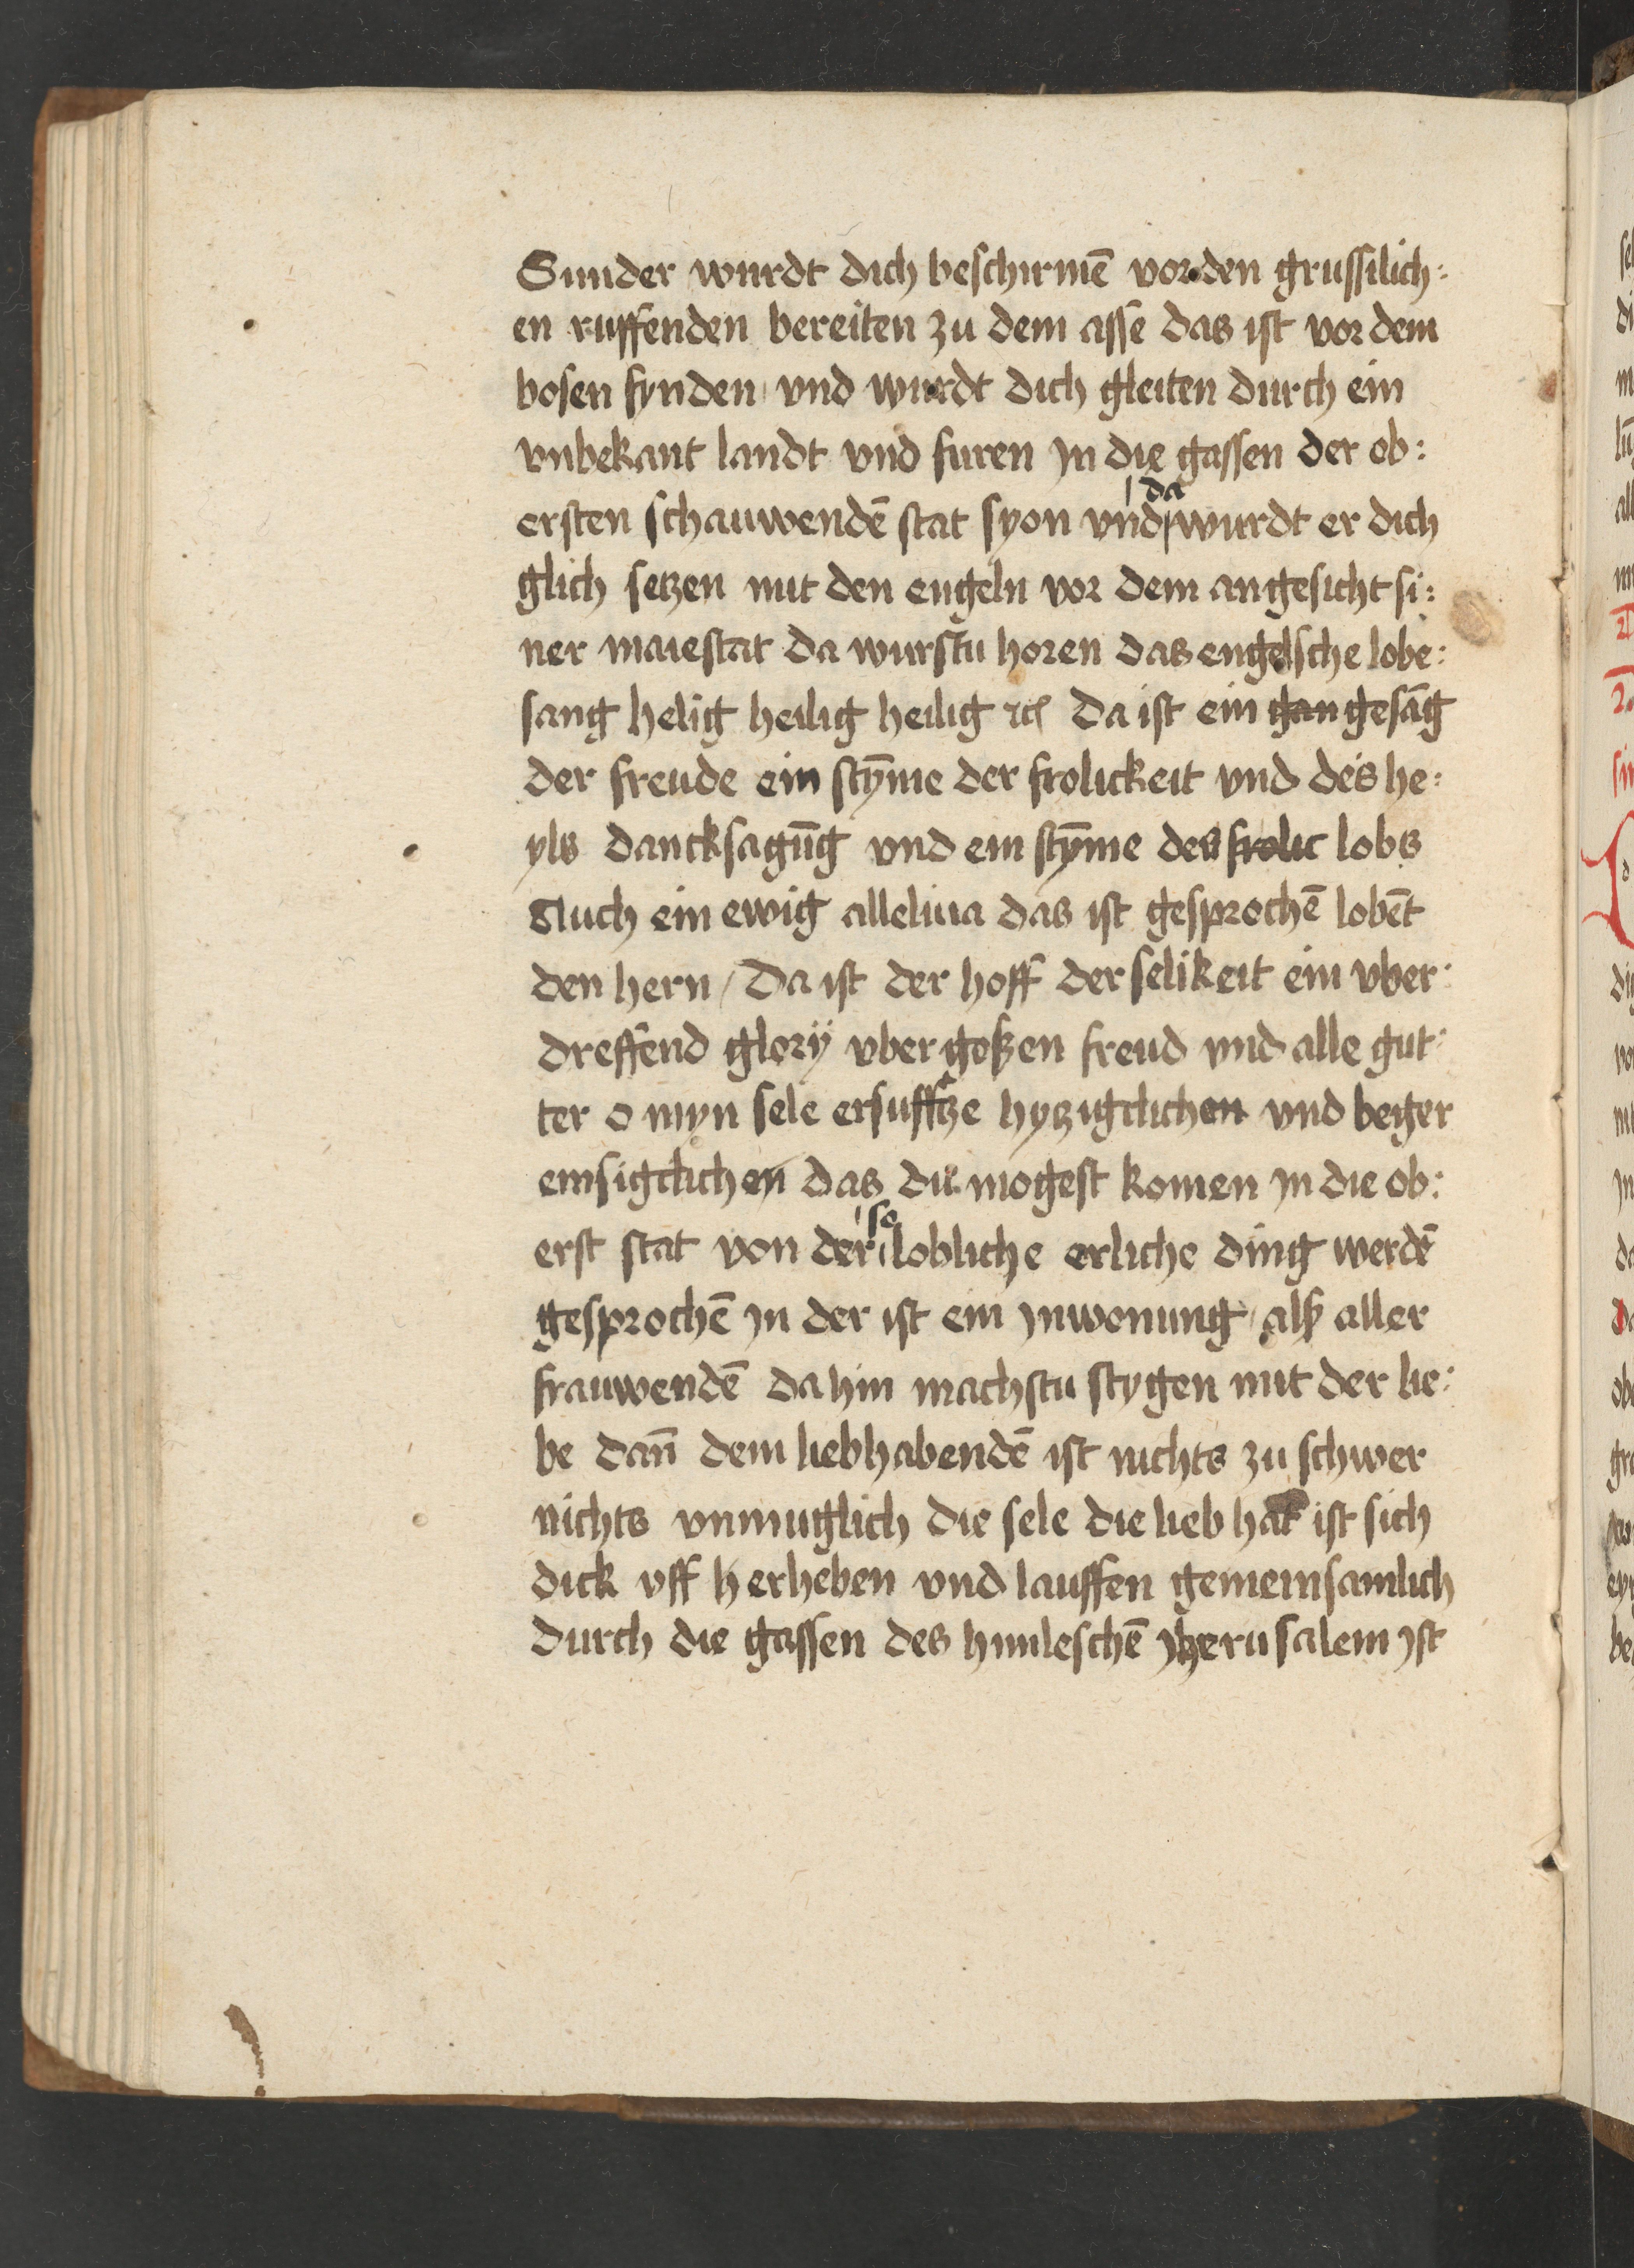 Sunder wurdt dich beschirmē vor den grussilich:
en ruffenden bereiten zu dem asse das ist vor dem
bosen fynden und wurdt dich gleiten durch ein
vnbekant landt vnd furen jn die gassen der ob:
ersten schauwendē stat syon vnd da wurdt er dich
glich setzen mit den engeln vor dem angesicht si:
ner maiestat da wurstu horen das engelsche lobe:
sang helig heilig heilig ꝛc Da ist ein gan gesāg
der freude ein stȳme der frolickeit vnd des he:
yls dancksagūg vnd ein stȳme des frolic lobs
Auch ein ewig alleluia das ist gesprochē lobēt
den hern / Da ist der hoff der selikeit ein vber:
dreffend glorÿ vbergoßen freud vnd alle gut:
ter o myn sele ersufftze hytziglichen vnd beger
emsiglichen das du mogest komen jn die ob:
erst stat von der so lobliche erliche ding werdē
gesprochē jn der ist ein jnwonung / alß aller
frauwendē da hin machstu stygen mit der lie:
be dan̄ dem liebhabendē ist nichts zu schwer
nichts vnmuglich die sele die lieb hat ist sich
dick vff herheben vnd lauffen gemeinsamlich
durch die gassen des himleschē jherusalem jst